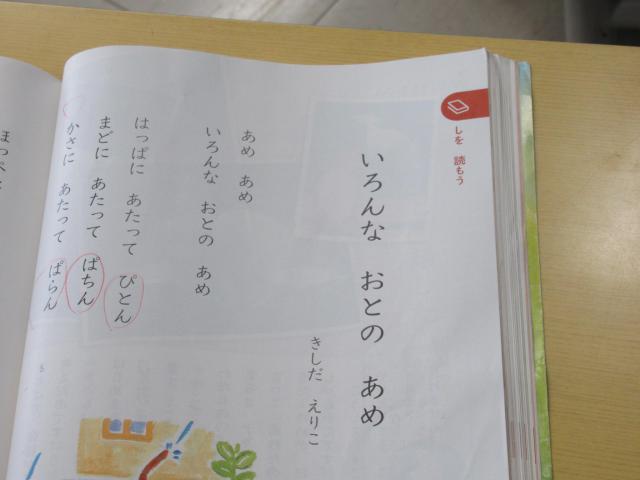 しを 読もう
いろんな おとの あめ
きしだ えりこ
あめ あめ
いろんな おとの あめ
はっぱに あたって ぴとん
まどに あたって ぱちん
かさに あたって ぱらん
ほっぺに